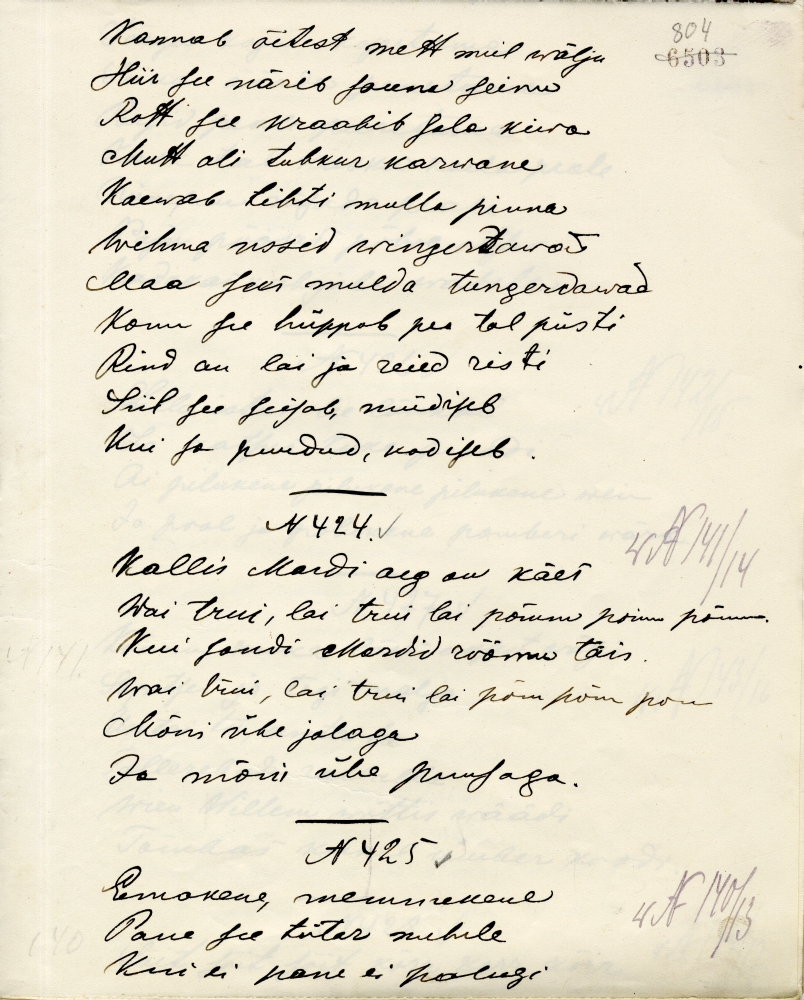 804
6503
Kannab õitest mett miil wälju
Hiir see närib sauna seinu
Rott see kraabib sala keiwa
Mutt oli tubkur karwane
Kaewab tihti mulla pinna
Wihma ussid wingerdawad
Maa sees mulda tungerdawad
Konn see hüppab pea tal püsti
Rind on lai ja reied risti
Siil see seisab, müdiseb
Kui sa puudud, kodiseb.
N 424.
Kallis Mardi aeg on käes
Wai trui, lai trui lai põmm põmm põmm.
Kui sandi Mardid rõõmu täis.
Wai trui, lai trui lai põm põm põm
Mõni ühe jalaga
Ja mõni ühe puusaga.
N 141/14
N 425
Eemakene, memmekene
Pane see tütar mehele
Kui ei pane ei palugi
N 140/13